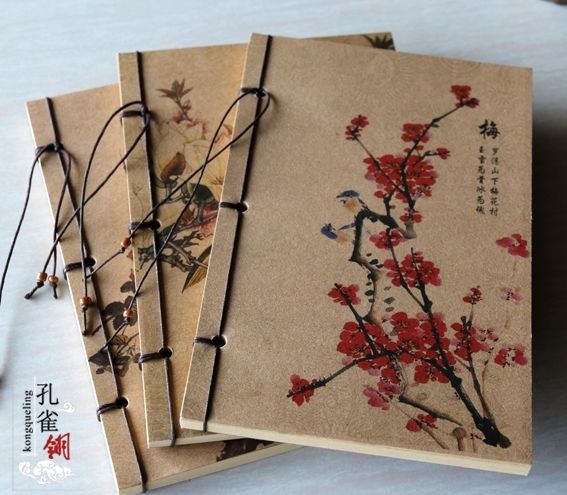 梅
罗浮山下梅花村
玉雪为骨冰为魂
孔雀翎
kongqueling